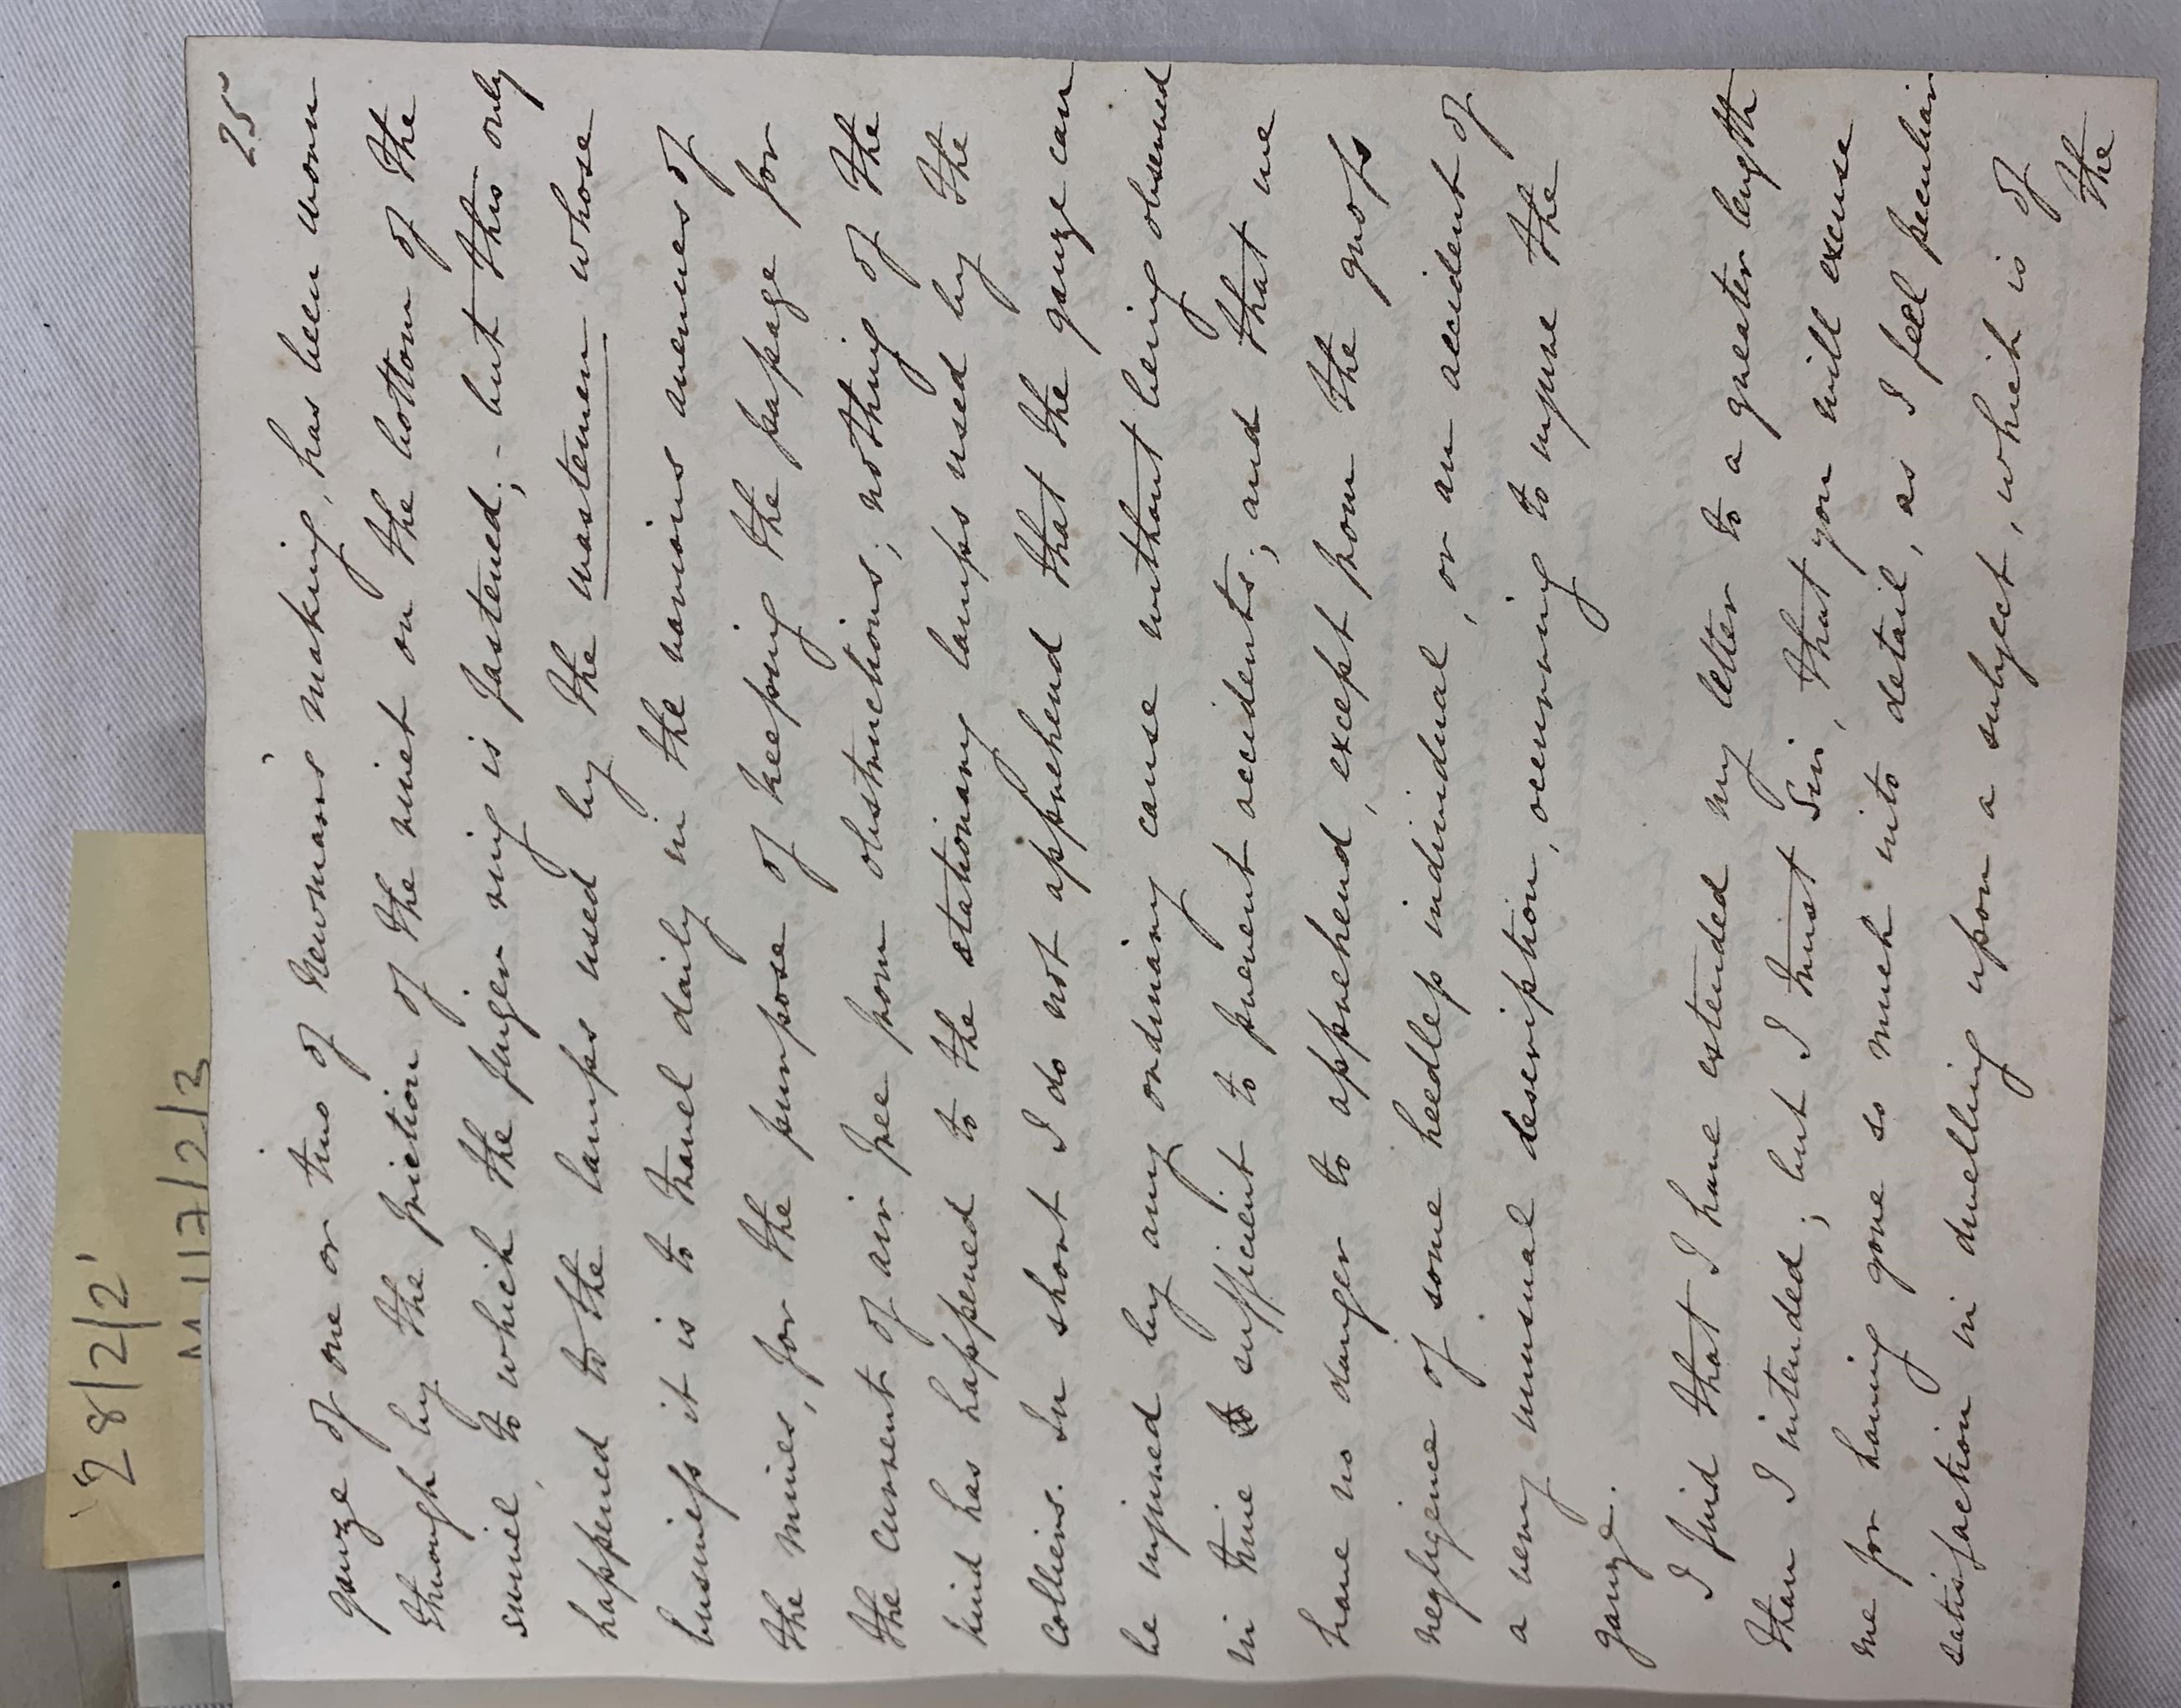 28/2/2'
M 117/2/3
25
gauze of one or two of Newmans making, has been worn
through by the friction of the rivet on the bottom of the
swivel, to which the finger ring is fastened; - but this only
happened to the lamps used by the wastemen whose
businefs it is to travel daily in the various avenues of
the mines, for the purpose of keeping the pafsage for
the current of air free from obstructions; nothing of the
kind has happened to the stationary lamps used by the
colliers. In short I do not apprehend that the gauze can
be injured by any ordinary cause without being observed
in time to sufficient to prevent accidents; and that we
have no danger to apprehend, except from the grofs
negligence of some heedlefs individual, or an accident of
a very unusual description, occurring to injure the
gauze.
I find that I have extended my letter to a greater length
than I intended; but I trust Sir, that you will excuse
me for having gone so much into detail, as I feel peculiar
satisfaction in dwelling upon a subject, which is of
the